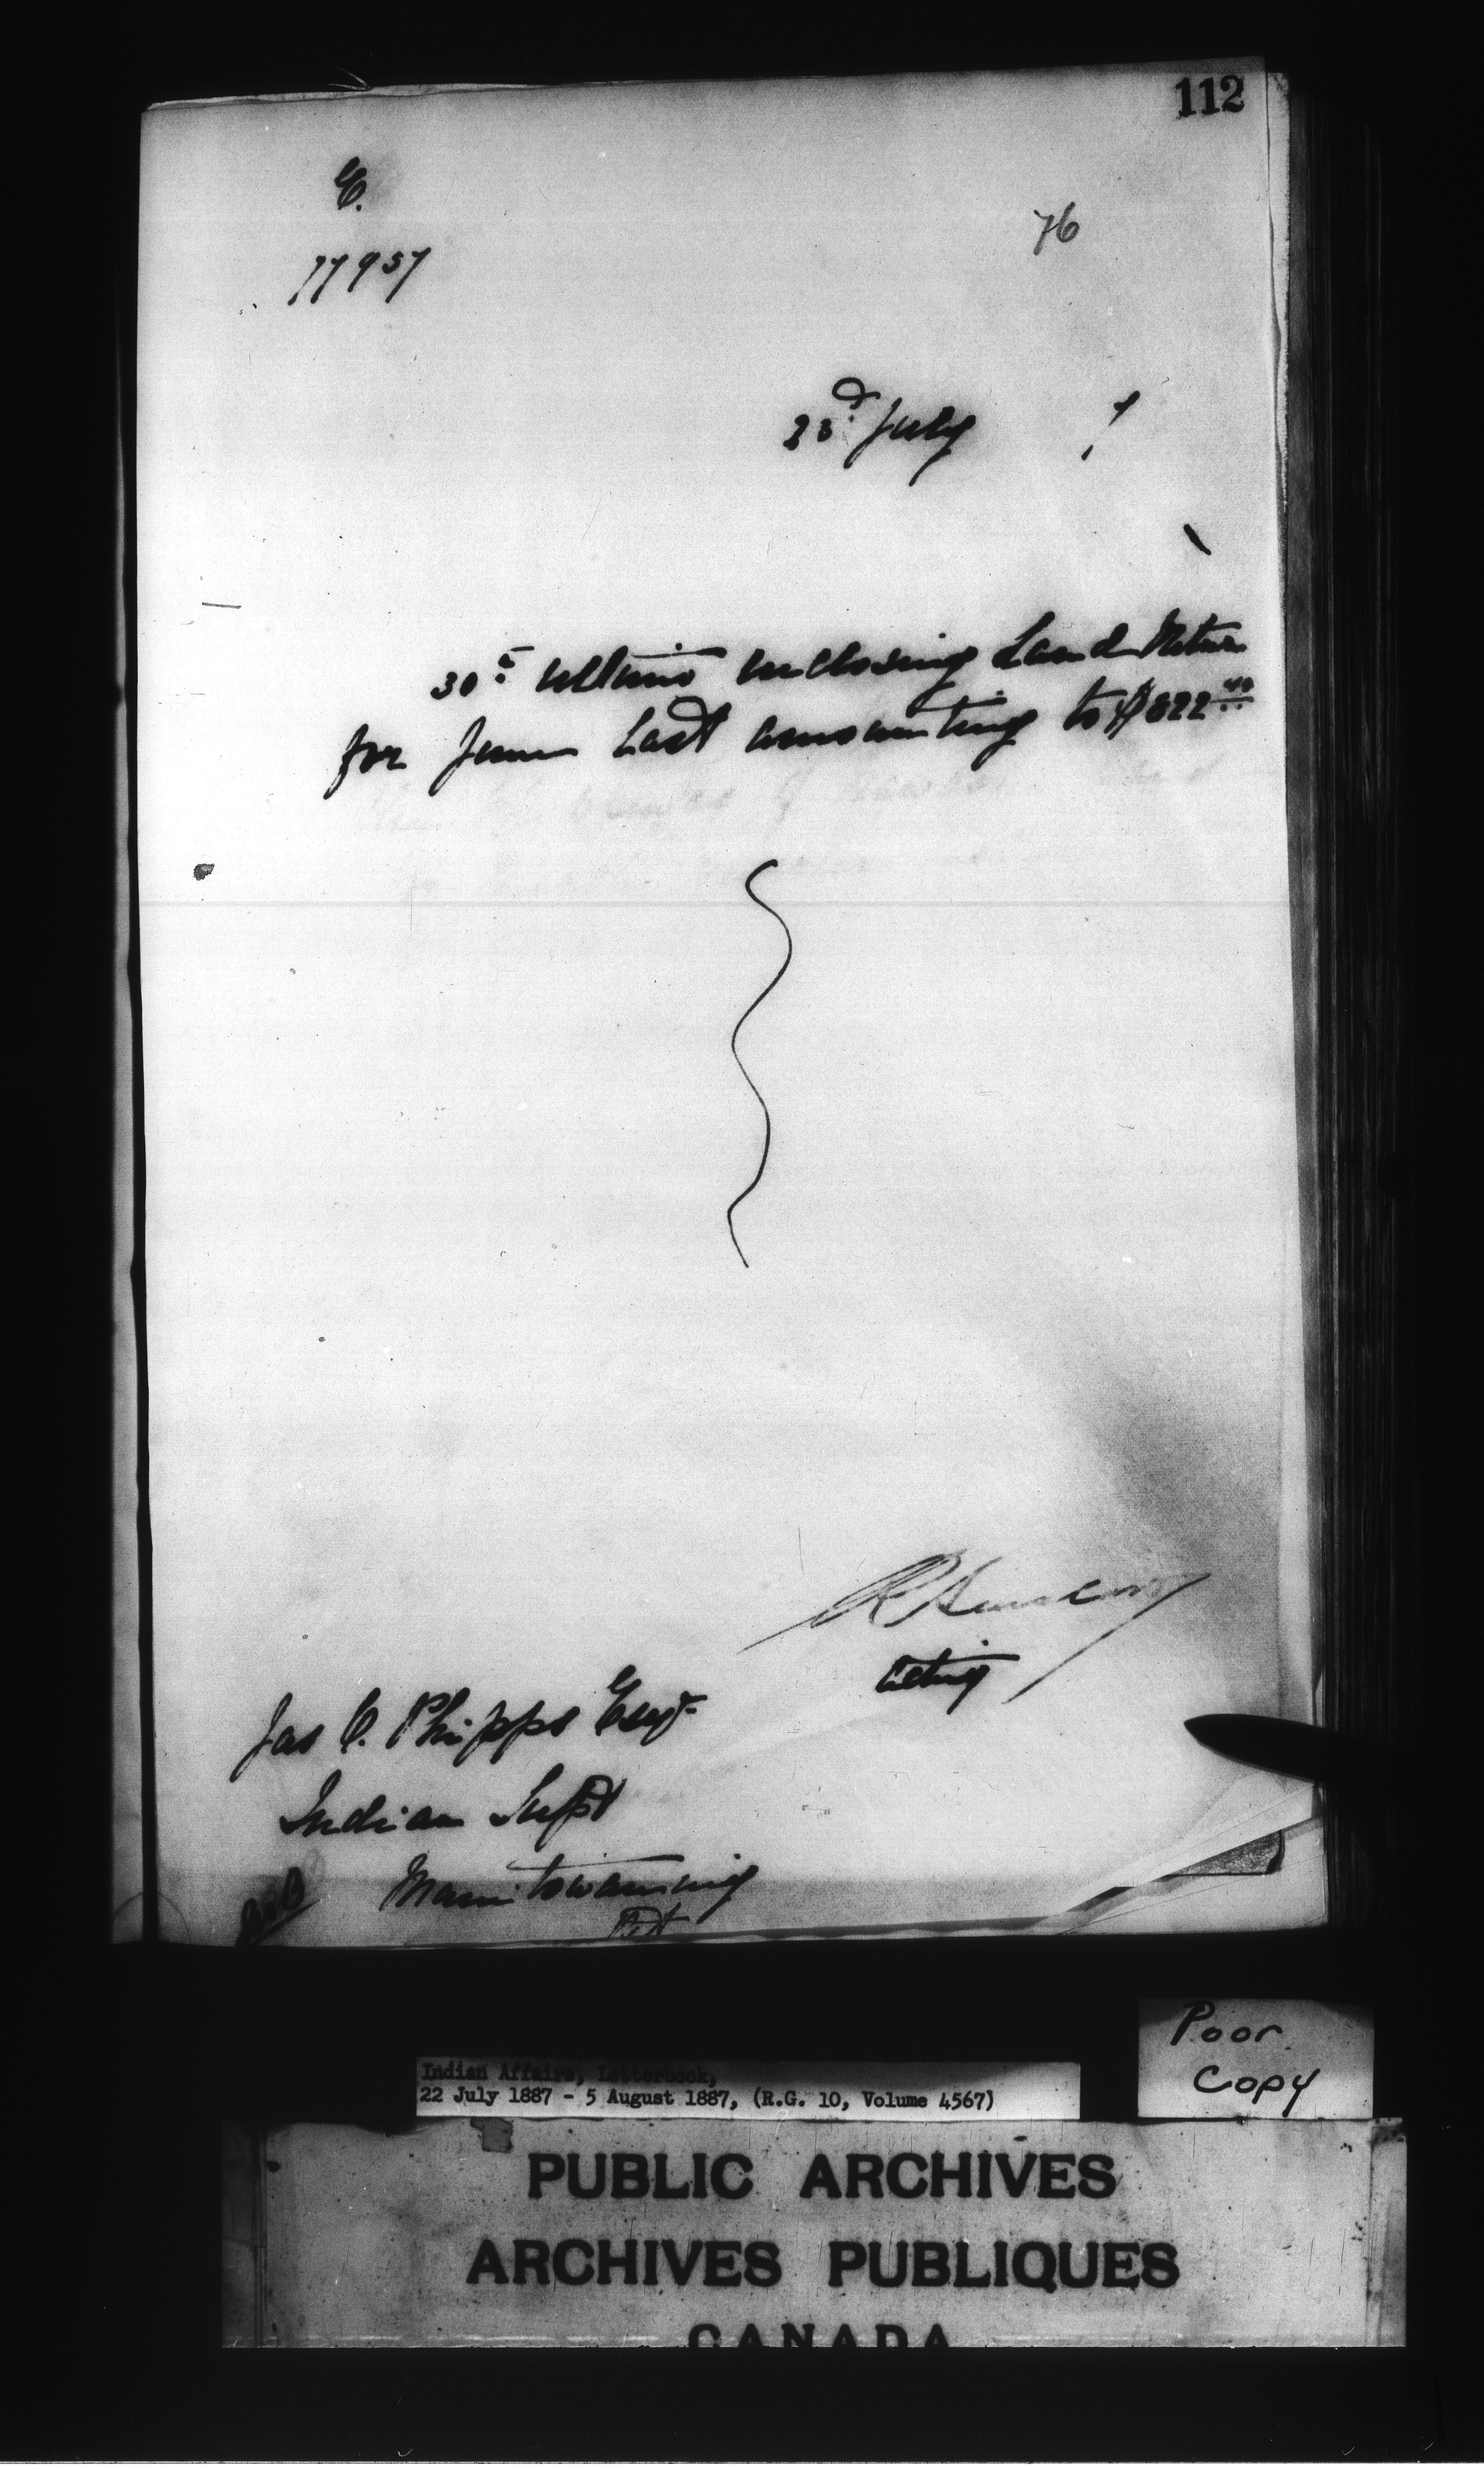 112
C.
77957
76
23d July 7
30th ultimo inclosing Land Return
for June last amounting to $822.40
Acting
Jas C. Phipps Esqr
Indian Supt
Manitowaning
Ont
Indian Affairs, Letterbook,
22 July 1887 - 5 August 1887, (R.G. 10, Volume 4567)
Poor
Copy
PUBLIC ARCHIVES
ARCHIVES PUBLIQUES
CANADA